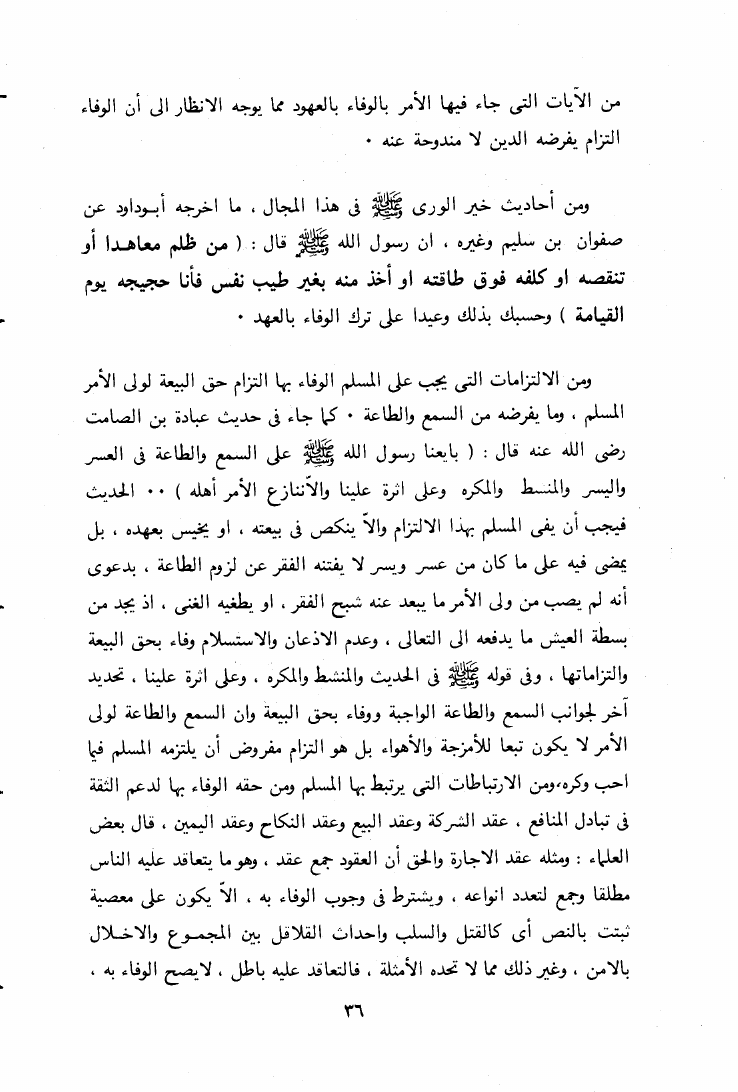 من الآيات التى جاء فيها الأمر بالوفاء بالعهود مما يوجه الانظار الى أن الوفاء
التزام يفرضه الدين لا مندوحة عنه ٠
ومن أحاديث خير الورى ﷺ فى هذا المجال ، ما اخرجه أبـوداود عن
صفوان بن سليم وغيره ، ان رسول الله ﷺ قال : ( من ظلم معاهـدا أو
تنقصه او كلفه فوق طاقته او أخذ منه بغير طيب نفس فأنا حجيجه يوم
القيامة ) وحسبك بذلك وعيدا على ترك الوفاء بالعهد ٠
ومن الالتزامات التى يجب على المسلم الوفاء بها التزام حق البيعة لولى الأمر
المسلم ، وما يفرضه من السمع والطاعة ٠ كما جاء فى حديث عبادة بن الصامت
رضى الله عنه قال : ( بايعنا رسول الله ﷺ على السمع والطاعة فى العسر
واليسر والمنسط والمكره وعلى اثرة علينا والأّننازع الأمر أهله ) ٠٠ الحديث
فيجب أن يفى المسلم بهذا الالتزام والاّ ينكص فى بيعته ، او يخيس بعهده ، بل
يمضى فيه على ما كان من عسر ويسر لا يفتنه الفقر عن لزوم الطاعة ، بدعوى
أنه لم يصب من ولى الأمر ما يبعد عنه شبح الفقر ، او يطغيه الغنى ، اذ يجد من
بسطة العيش ما يدفعه الى التعالى ، وعدم الاذعان والاستسلام وفاء بحق البيعة
والتزاماتها ، وفى قوله ﷺ فى الحديث والمنشط والمكره ، وعلى اثرة علينا ، تحديد
آخر لجوانب السمع والطاعة الواجبة ووفاء بحق البيعة وان السمع والطاعة لولى
الأمر لا يكون تبعا للأمزجة والأهواء بل هو التزام مفروض أن يلتزمه المسلم فيما
احب وكره،ومن الارتباطات التى يرتبط بها المسلم ومن حقه الوفاء بها لدعم الثقة
فى تبادل المنافع ، عقد الشركة وعقد البيع وعقد النكاح وعقد اليمين ، قال بعض
العلماء : ومثله عقد الاجارة والحق أن العقود جمع عقد ، وهو ما يتعاقد عليه الناس
مطلقا وجمع لتعدد انواعه ، ويشترط فى وجوب الوفاء به ، الاّ يكون على معصية
ثبتت بالنص أى كالقتل والسلب واحداث القلاقل بين المجمـوع والاخـلال
بالامن ، وغير ذلك مما لا تحده الأمثلة ، فالتعاقد عليه باطل ، لايصح الوفاء به ،
٣٦